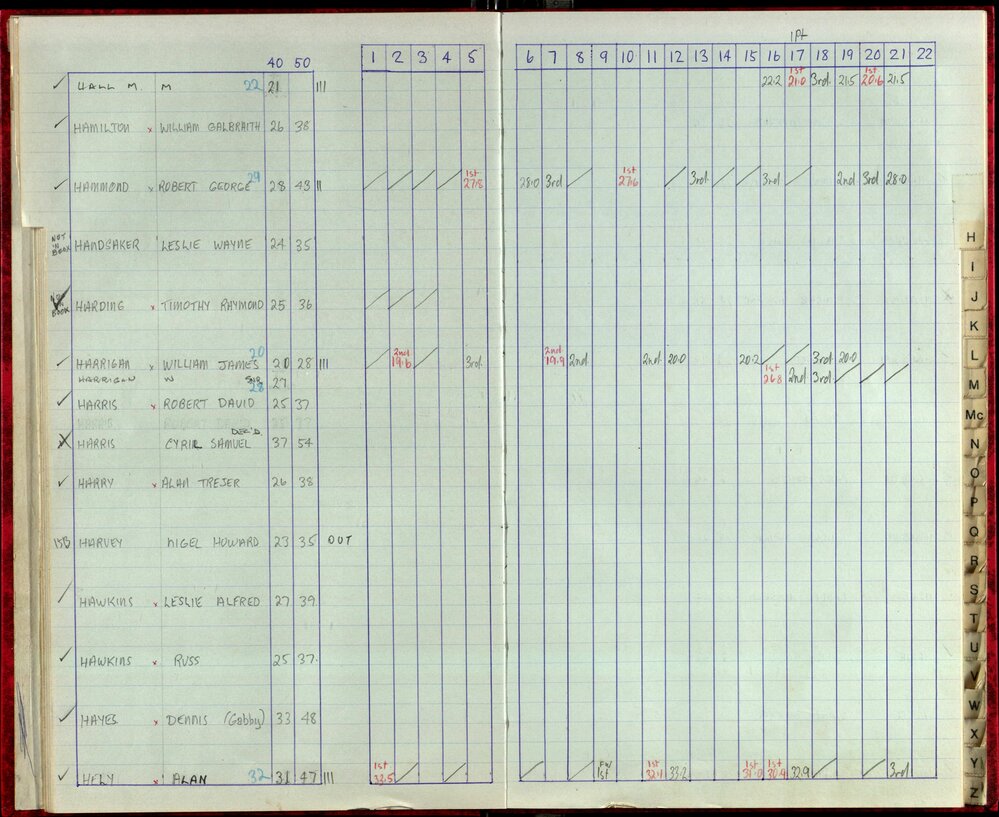 1pt
40 50 1 2 3 4 5 6 7 8 9 10 11 12 13 14 15 16 17 18 19 20 21 22
✓ HALL M. M 22 21 III 22.2 1st 21.0 3rd 21.5 1st 20.6 21.5
✓ HAMILTON x WILLIAM GALBRAITH 26 38
✓ HAMMOND x ROBERT GEORGE 29 28 43 II / / / / 1st 27.8 28.0 3rd / 1st 27.6 / 3rd / / 3rd / 2nd 3rd 28.0
NOT IN BOOK HANDSAKER LESLIE WAYNE 24 35
✓ NOT IN BOOK HARDING x TIMOTHY RAYMOND 25 36 / / /
✓ HARRIGAN x WILLIAM JAMES 20 20 28 III / 2nd 19.6 / 3rd 2nd 19.9 2nd 2nd 20.0 20.2 / / 3rd 20.0
HARRIGAN W SNR 28 27 1st 26.8 2nd 3rd / / /
✓ HARRIS x ROBERT DAVID 25 37
HARRIS ROBERT
X HARRIS CYRIL SAMUEL DEC'D. 37 54
✓ HARRY x ALAN TREJER 26 38
HARVEY NIGEL HOWARD 23 35 OUT
/ HAWKINS x LESLIE ALFRED 27 39
✓ HAWKINS x RUSS 25 37
✓ HAYES x DENNIS (Gabby) 33 48
✓ HELY x ALAN 32 31 47 III 1st 33.5 / / / / 1st 1st 32.1 33.2 1st 31.0 1st 30.9 32.9 / / 3rd
H
I
J
K
L
M
Mc
N
O
P
Q
R
S
T
U
V
W
X
Y
Z